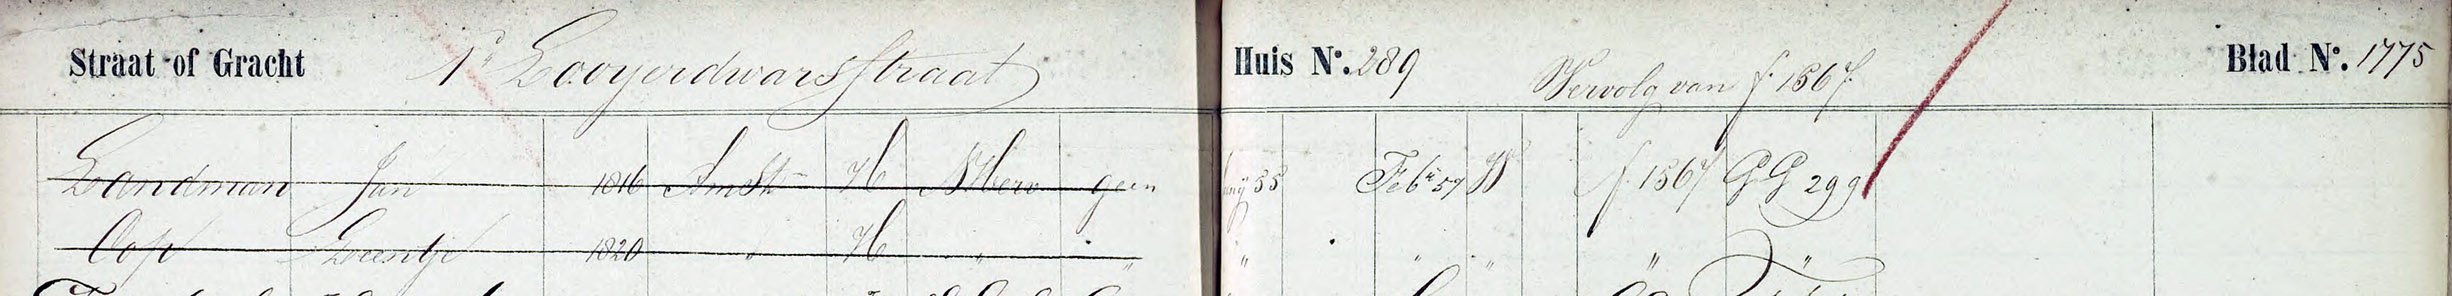 Straat of Gracht 1e Looyerdwarsstraat Huis No. 289 Vervolg van f. 1567 Blad No. 1775
Landman Jan 1816 Amst H NHerv geen 55 Feb 57 W f. 1567 GG 299
Leentje 1820 " H " " " " " " "